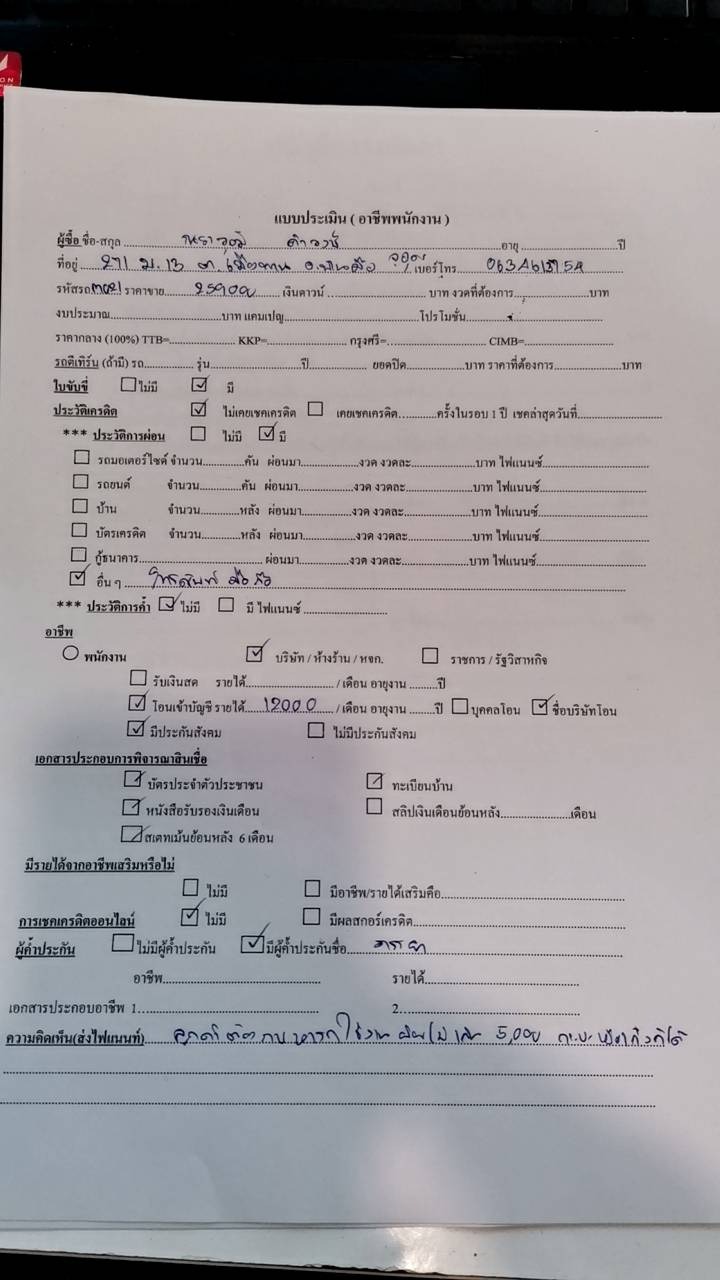 แบบประเมิน ( อาชีพพนักงาน )
ผู้ซื้อ ชื่อ-สกุล อายุ ปี
ที่อยู่ 271 ม.13 ต. อ. เบอร์โทร
รหัสรถ ราคาขาย 259000 เงินดาวน์ บาท งวดที่ต้องการ บาท
งบประมาณ บาท แคมเปญ โปรโมชั่น
ราคากลาง (100%) TTB= KKP= กรุงศรี= CIMB=
รถตีเทิร์น (ถ้ามี) รถ รุ่น ปี ยอดปิด บาท ราคาที่ต้องการ บาท
ใบขับขี่ ไม่มี มี
ประวัติเครดิต ไม่เคยเชคเครดิต เคยเชคเครดิต ครั้งในรอบ 1 ปี เชคล่าสุดวันที่
*** ประวัติการผ่อน ไม่มี มี
รถมอเตอร์ไซค์ จำนวน คัน ผ่อนมา งวด งวดละ บาท ไฟแนนซ์
รถยนต์ จำนวน คัน ผ่อนมา งวด งวดละ บาท ไฟแนนซ์
บ้าน จำนวน หลัง ผ่อนมา งวด งวดละ บาท ไฟแนนซ์
บัตรเครดิต จำนวน หลัง ผ่อนมา งวด งวดละ บาท ไฟแนนซ์
กู้ธนาคาร ผ่อนมา งวด งวดละ บาท ไฟแนนซ์
อื่น ๆ โทรศัพท์ มือถือ
*** ประวัติการค้ำ ไม่มี มี ไฟแนนซ์
อาชีพ
พนักงาน บริษัท / ห้างร้าน / หจก. ราชการ / รัฐวิสาหกิจ
รับเงินสด รายได้ / เดือน อายุงาน ปี
โอนเข้าบัญชี รายได้ 12000 / เดือน อายุงาน ปี บุคคลโอน ชื่อบริษัทโอน
มีประกันสังคม ไม่มีประกันสังคม
เอกสารประกอบการพิจารณาสินเชื่อ
บัตรประจำตัวประชาชน ทะเบียนบ้าน
หนังสือรับรองเงินเดือน สลิปเงินเดือนย้อนหลัง เดือน
สเตทเม้นย้อนหลัง 6 เดือน
มีรายได้จากอาชีพเสริมหรือไม่
ไม่มี มีอาชีพ/รายได้เสริมคือ
การเชคเครดิตออนไลน์ ไม่มี มีผลสกอร์เครดิต
ผู้ค้ำประกัน ไม่มีผู้ค้ำประกัน มีผู้ค้ำประกันชื่อ
อาชีพ รายได้
เอกสารประกอบอาชีพ 1 2
ความคิดเห็น(ส่งไฟแนนท์) ลูกค้า ต้องการ ใช้งาน ไม่เกิน 5,000